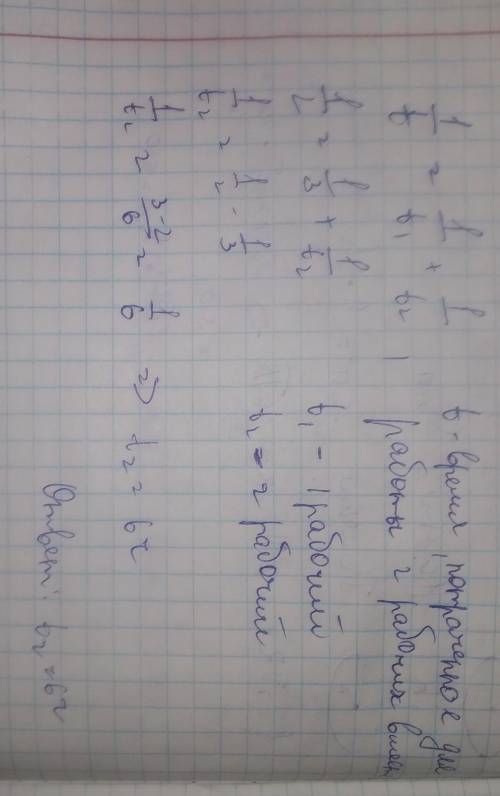 1/t = 1/t₁ + 1/t₂ , t - время, потраченное для
работы 2 рабочих вмес
1/2 = 1/3 + 1/t₂ t₁ - 1 рабочий
1/t₂ = 1/2 - 1/3 t₂ - 2 рабочий
1/t₂ = 3-2/6 = 1/6 => t₂ = 6ч
Ответ: t₂ = 6ч